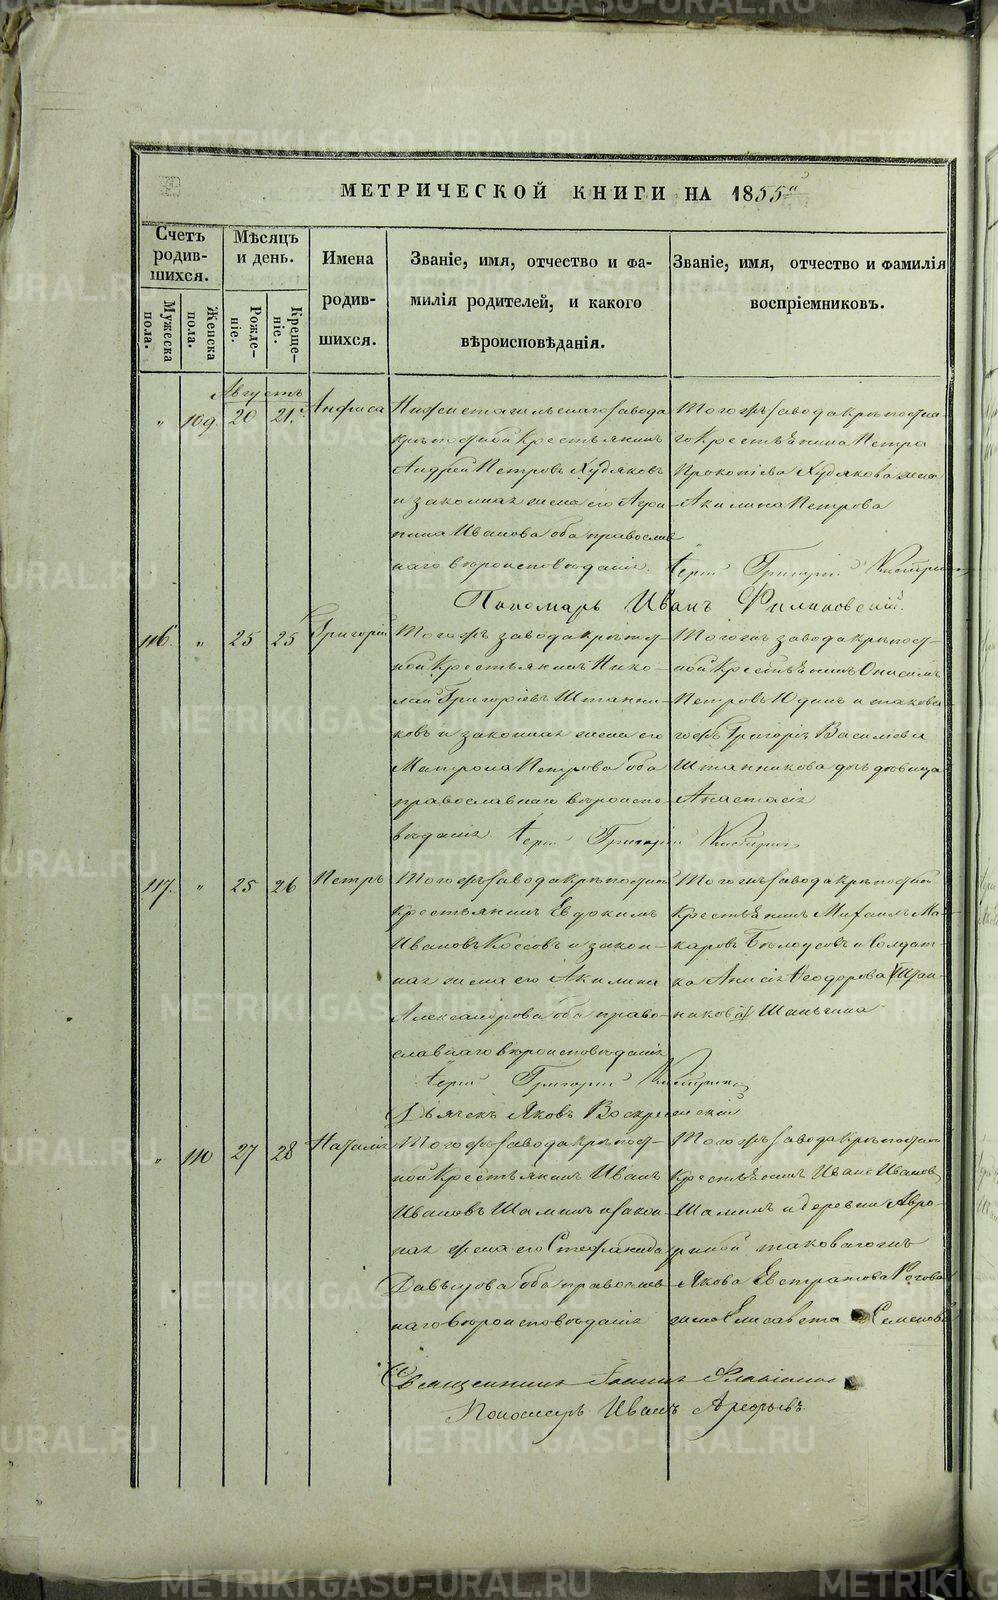 МЕТРИЧЕСКОЙ КНИГИ НА 1855
Счетъ родив- шихся.
Мѣсяцъ и день.
Имена родив- шихся.
Званіе, имя, отчество и фа-
милія родителей, и какого
вѣроисповѣданія.
Званіе, имя, отчество и фамилія
воспріемниковъ.
Мужеска пола.
Женска пола.
Рожде- ніе.
Креще- ніе.
Августъ
" 109 20 21. Анфиса
завода
крѣпостной Крестьянинъ
Андрей Петровъ Худяковъ
и законная жена его Агри-
пина Иванова оба православ
наго вѣроисповѣданія.
Тогожъ завода крѣпостна-
го Крестьянина Петра
Прокопіева Худякова жена
Акилина Петрова
Іерей Григорій
Пономарь Иванъ Филиковскій.
116. " 25 25 Григорій
Тогожъ завода крѣпост-
ной Крестьянинъ Нико-
лай Григоріевъ Штанни-
ковъ и законная жена его
Матрона Петрова оба
православнаго вѣроиспо-
вѣданія.
Тогожъ завода крѣпост-
ной Крестьянинъ Онисимъ
Петровъ Юдинъ и таковa-
гожъ Григорія Васильева
Штанникова дочь дѣвица
Анастасія
Іерей Григорій
117. " 25 26 Петръ
Тогожъ завода крѣпостной
Крестьянинъ Евдокимъ
Ивановъ Коссовъ и закон-
ная жена его Акилина
Александрова оба право-
славнаго вѣроисповѣданія
Тогожъ завода крѣпостной
Крестьянинъ Михаилъ Ма-
каровъ Бѣлоусовъ и Солдат-
ка Анисія Ѳеодорова
Іерей Григорій
Дьячекъ Яковъ Воскресенскій
" 110 27 28 Наталія
Тогожъ завода крѣпост-
ной Крестьянинъ Иванъ
Ивановъ Шаминъ и закон-
ная жена его Стефанида
Давыдова оба православ-
наго вѣроисповѣданія
Тогожъ завода крѣпостной
Крестьянинъ Иванъ Ивановъ
Шаминъ и деревни Авро-
риной таковагожъ
Якова Евстратова Рогова
жена Елисавета Семенова
Священникъ Іоаннъ Флавіановъ
Пономарь Иванъ Арефьевъ.
METRIKI.GASO-URAL.RU